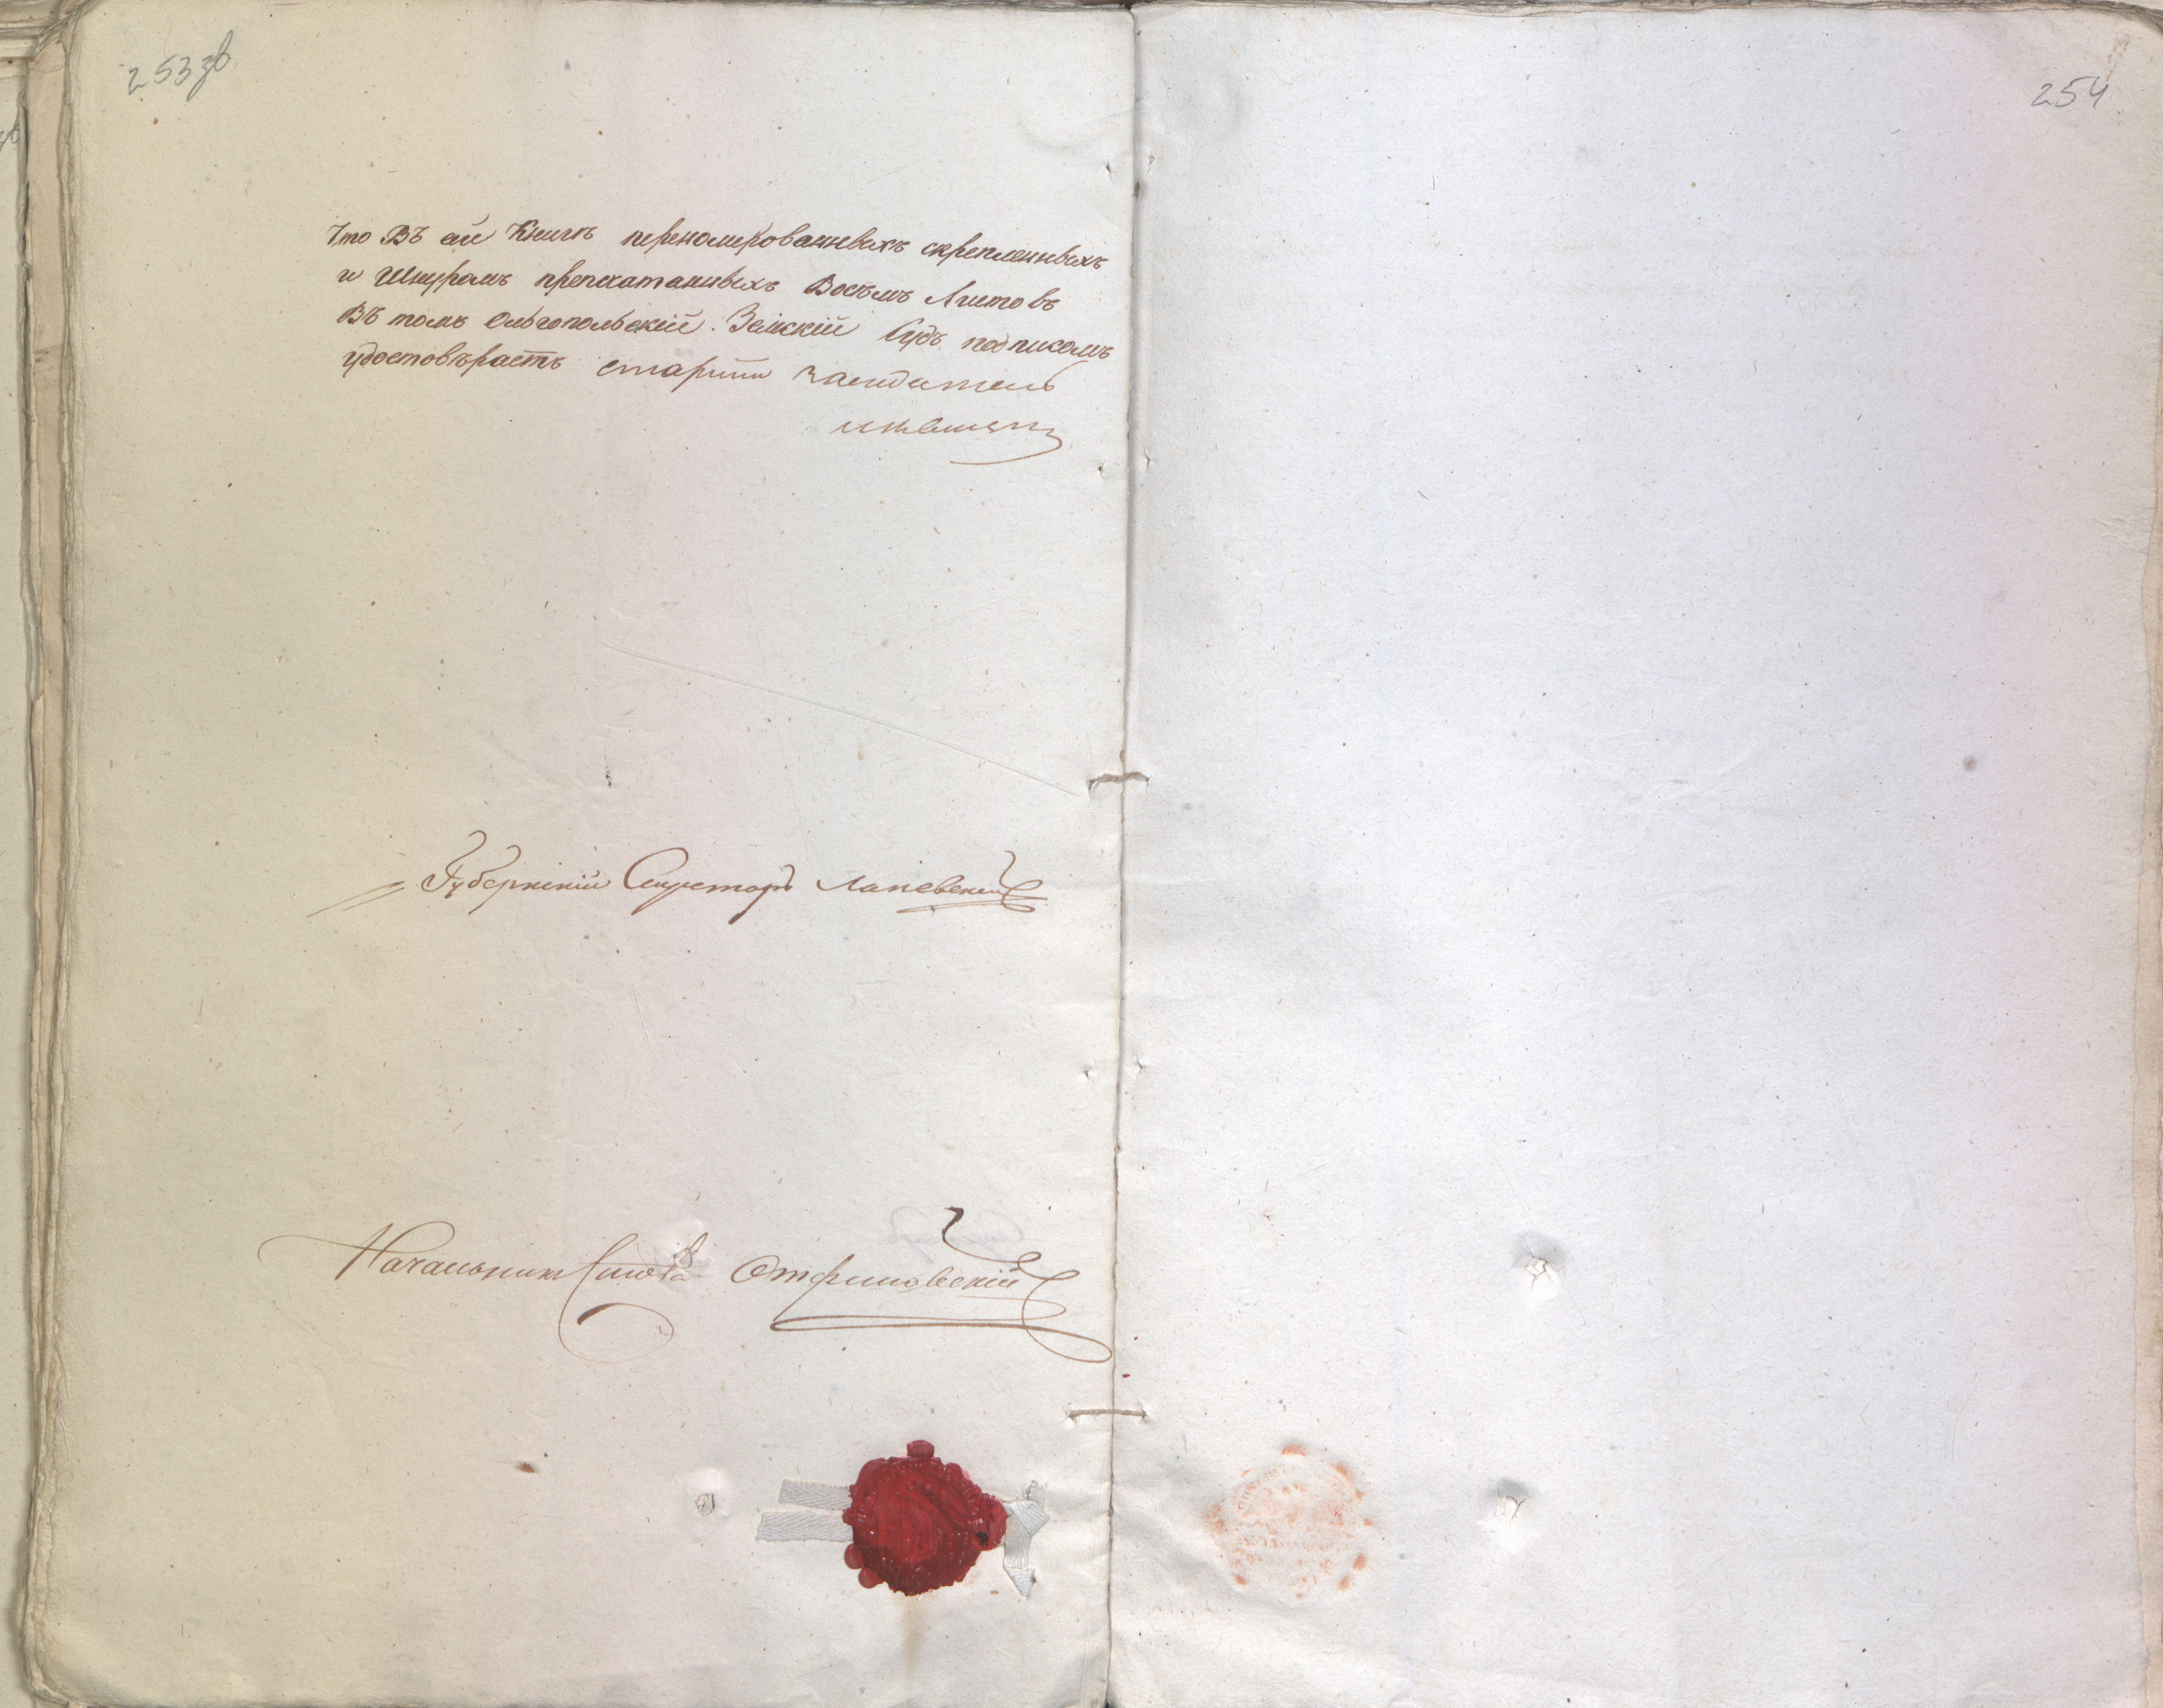 253зв
254
Что Въ сей Книги переномерованныхъ скрепленныхъ
и Шнуромъ препечатанныхъ Восъмъ Листовъ
Въ томъ Ольгопольскій Земскій Судъ подписомъ
удостовѣраетъ старшій Заседатель
Губернскій Секретарь Лапевскій
Начальникъ Стола